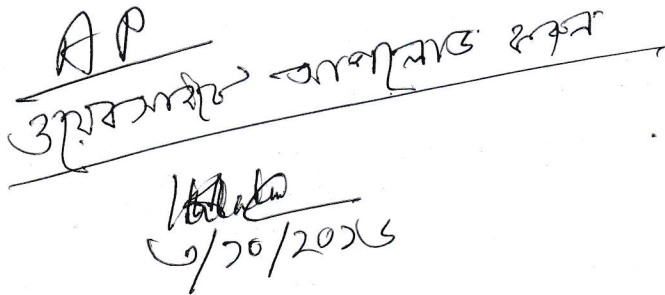 AP
ওয়েবসাইটে আপলোড করুন
৩/১০/২০১৬